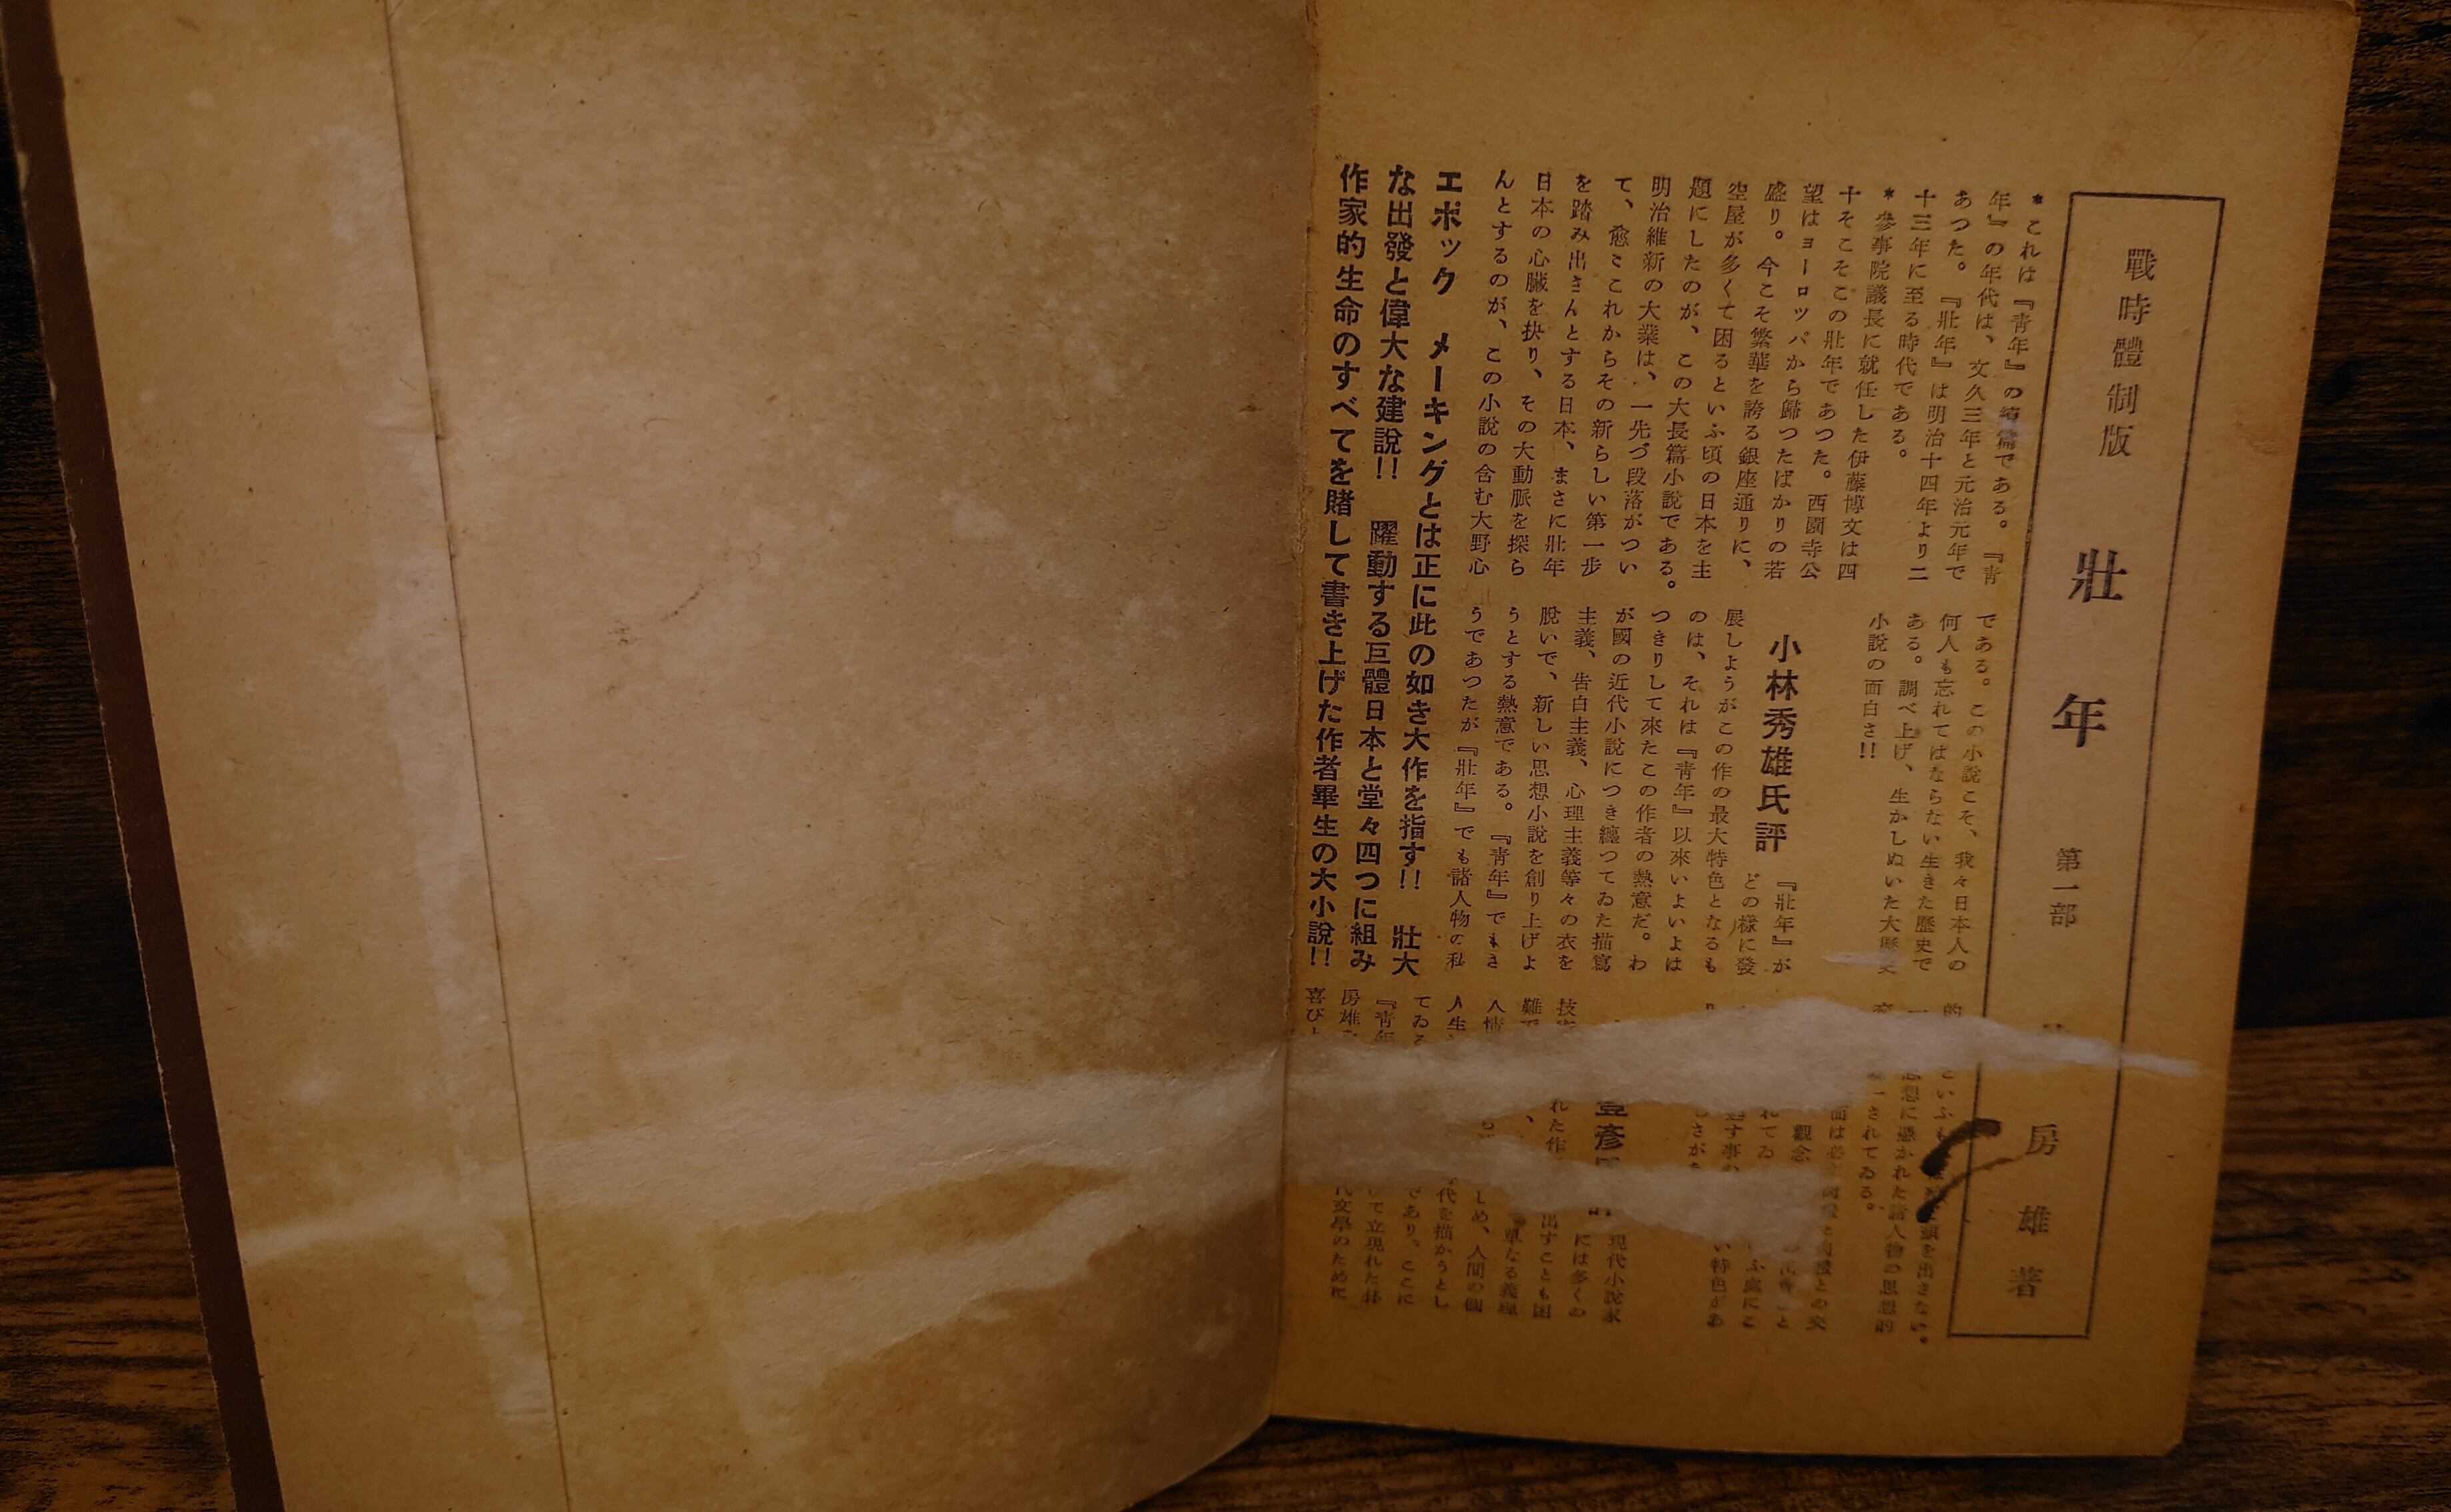 戰時體制版　壯年　第一部　房雄著
＊これは『青年』の續篇である。『青
年』の年代は、文久三年と元治元年で
あつた。『壯年』は明治十四年より二
十三年に至る時代である。
＊參事院議長に就任した伊藤博文は四
十そこそこの壯年であつた。西園寺公
望はヨーロツパから歸つたばかりの若
盛り。今こそ繁華を誇る銀座通りに、
空屋が多くて困るといふ頃の日本を主
題にしたのが、この大長篇小說である。
明治維新の大業は、一先づ段落がつい
て、愈々これからその新らしい第一步
を踏み出さんとする日本、まさに壯年
日本の心臟を抉り、その大動脈を探ら
んとするのが、この小說の含む大野心
である。この小說こそ、我々日本人の
何人も忘れてはならない生きた歷史で
ある。調べ上げ、生かしぬいた大歷史
小說の面白さ!!
小林秀雄氏評
『壯年』が
どの樣に發
展しようがこの作の最大特色となるも
のは、それは『青年』以來いよいよは
つきりして來たこの作者の熱意だ。わ
が國の近代小說につき纏つてゐた描寫
主義、告白主義、心理主義等々の衣を
脫いで、新しい思想小說を創り上げよ
うとする熱意である。『青年』でもさ
うであつたが『壯年』でも諸人物の私
的
といふも
頭を出さない。
思想に憑かれた諸人物の思想的
一されてゐる。
面は必
との交
觀念
れてゐ
ふ處にこ
す事の
い特色があ
豈彥
現代小說家
には多くの
技
れた作
難で
出すことも困
人情
單なる義理
人生
しめ、人間の個
てゐる
代を描かうとし
『青年
であり、ここに
房雄
て立現れた林
喜び
代文學のために
エポック　メーキングとは正に此の如き大作を指す!!　壯大
な出發と偉大な建說!!　躍動する巨體日本と堂々四つに組み
作家的生命のすべてを賭して書き上げた作者畢生の大小說!!